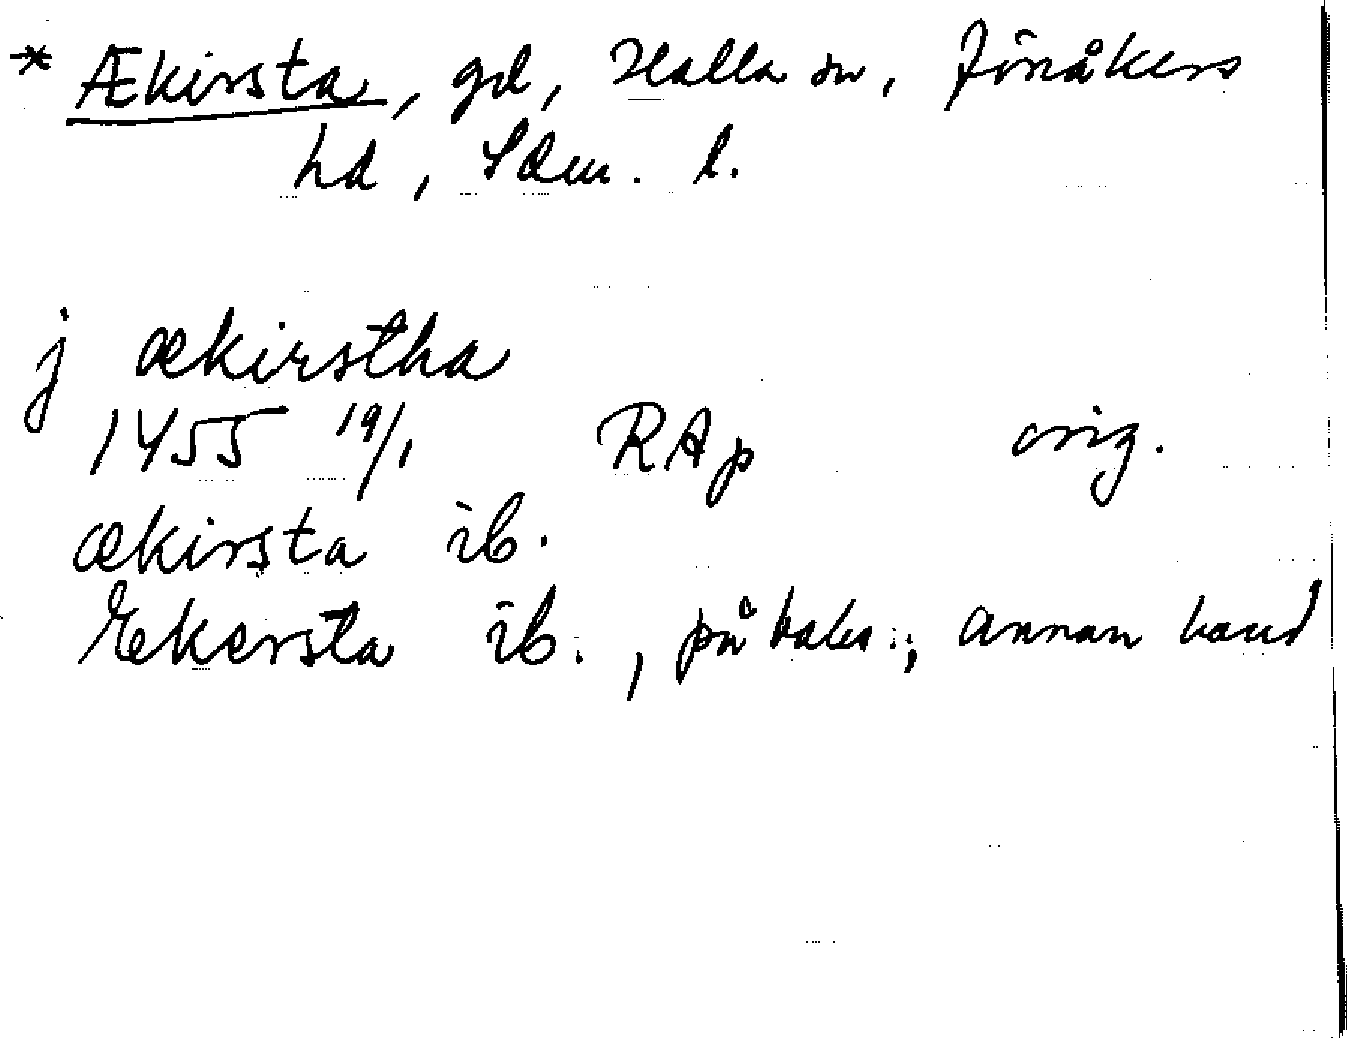 * Ækirsta, gd, Halla sn, Jönåkers
hd, Södm. l.
j ækirstha
1455 19/1 RAp orig.
ækirsta ib.
Ekersta ib., på baks.; annan hand